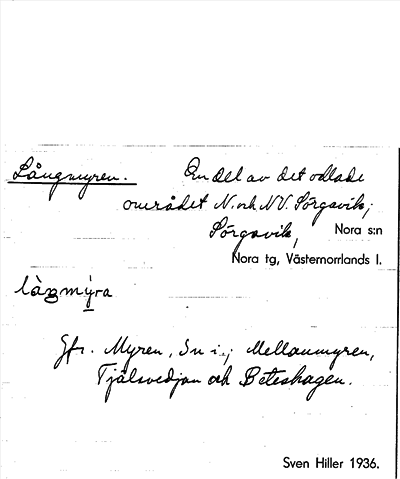 Långmyren. En del av det odlade
området N. och NV. Sörgavik;
Sörgavik, Nora s:n
Nora tg, Västernorrlands l.
làŋmy̲ra
Jfr. Myren, Sn i.; Mellanmyren,
Tjälsvedjan och Beteshagen.
Sven Hiller 1936.